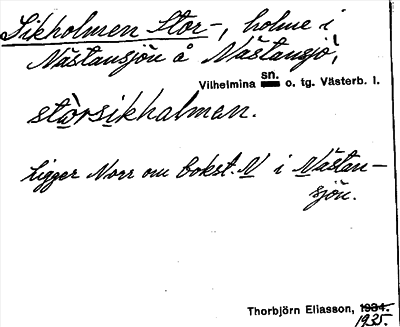 Sikholmen Stor-, holme i
Nästansjön å Nästansjö,
Vilhelmina sn. o. tg. Västerb. l.
stòrsikhalman.
ligger Norr om bokst. N i Nästan-
sjön.
Thorbjörn Eliasson, 1934.
1935.